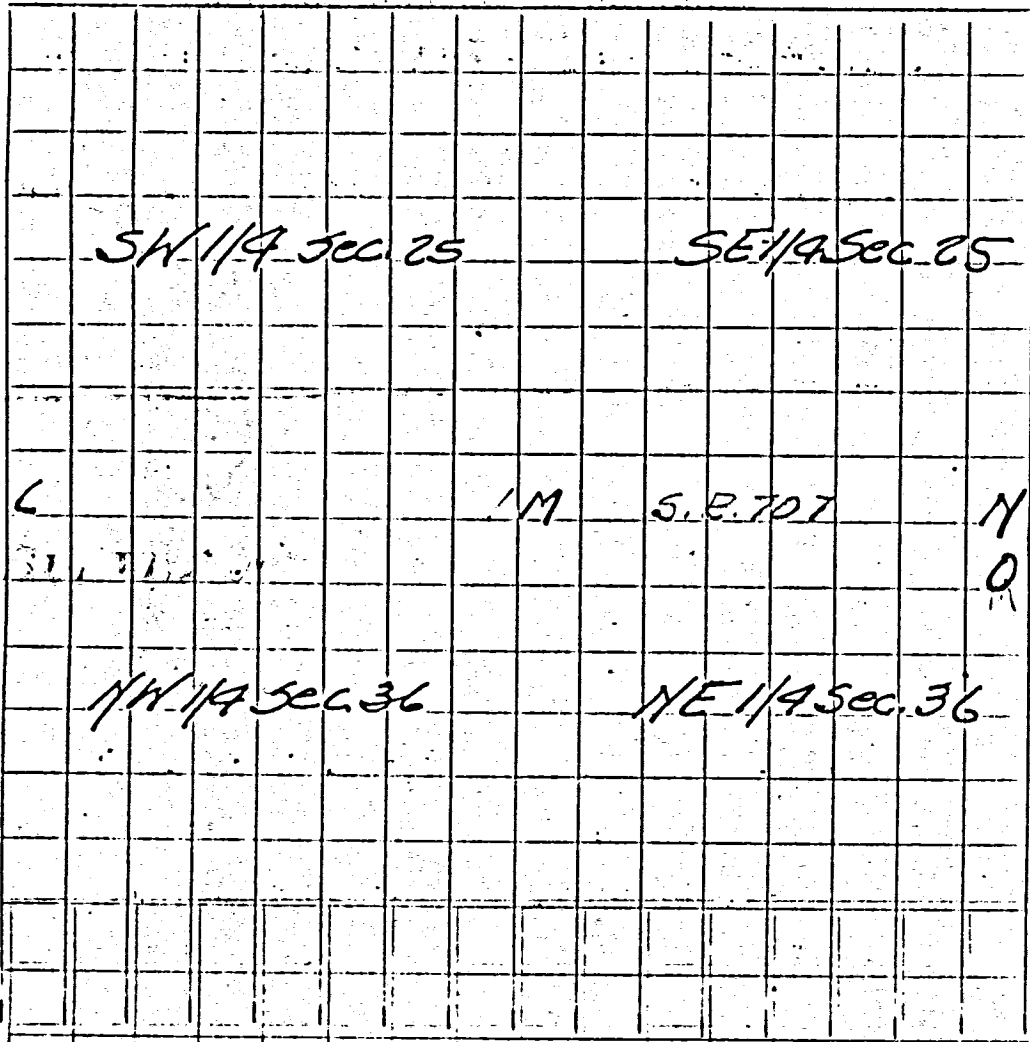 SW 1/4 Sec. 25 SE 1/4 Sec 25
L M S.R. 707 N
O
NW 1/4 Sec. 36 NE 1/4 Sec. 36